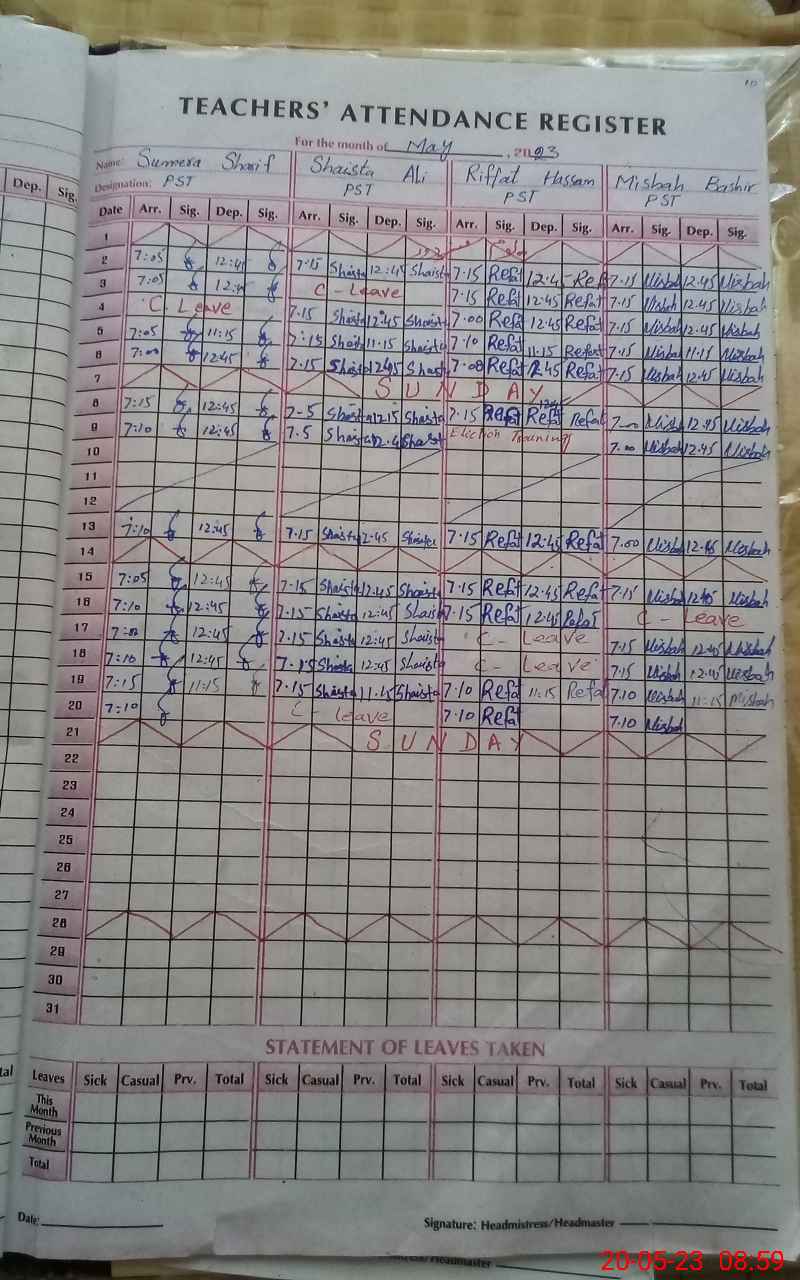 10
TEACHERS' ATTENDANCE REGISTER
For the month of May, 2023
Name: Sumera Sharif Shaista Ali Riffat Hassam Misbah Bashir
Designation: PST PST PST PST
Dep. Sig.
Date Arr. Sig. Dep. Sig. Arr. Sig. Dep. Sig. Arr. Sig. Dep. Sig. Arr. Sig. Dep. Sig.
1
2 7:05 12:45 7.15 Shaista 12:45 Shaista 7.15 Refat 12.45 Ref 7.15 Misbah 12.45 Misbah
3 7:05 C - Leave 7.15 Refat 12:45 Refat 7.15 Misbah 12.45 Misbah
4 C. Leave 7.15 Shaista 12.45 Shaista 7.00 Refat 12.45 Refat 7.15 Misbah 12.45 Misbah
5 7:05 11:15 7:15 Shaista 11.15 Shaista 7.10 Refat 11.15 Refat 7.15 Misbah 11.15 Misbah
6 7:00 12:45 7.15 Shaista 12.45 Shaista 7.00 Refat 12.45 Refat 7.15 Misbah 12.45 Misbah
7 SUNDAY
8 7:15 12:45 7-5 Shaista 12.15 Shaista 7.15 Refat 12:45 Refat Refat Misbah 12.45 Misbah
9 7:10 12:45 7.5 Shaista 12.4 Shaist Election Training 7.00 Misbah 12.45 Misbah
10
11
12
13 7:10 12:45 7.15 Shaista 12.45 Shaista 7.15 Refat 12.45 Refat 7.00 Misbah 12.45 Misbah
14
15 7:05 12:45 7.15 Shaista 12.45 Shaista 7.15 Refat 12.45 Refat 7.15 Misbah 12.45 Misbah
16 7:10 12:45 7.15 Shaista 12:45 Shaista 7.15 Refat 12.45 Refat C - Leave
17 7:00 12:45 7.15 Shaista 12:45 Shaista C - Leave 7.15 Misbah 12.45 Misbah
18 7:10 12:45 7.15 Shaista 12:45 Shaista C - Leave 7.15 Misbah 12.45 Misbah
19 7:15 11:15 7.15 Shaista 11.15 Shaista 7.10 Refat 11:15 Refat 7.10 Misbah 11:15 Misbah
20 7:10 C - leave 7.10 Refat 7.10 Misbah
21 SUNDAY
22
23
24
25
26
27
28
29
30
31
STATEMENT OF LEAVES TAKEN
Leaves Sick Casual Prv. Total Sick Casual Prv. Total Sick Casual Prv. Total Sick Casual Prv. Total
This Month
Previous Month
Total
Date:
Signature: Headmistress/Headmaster
20-05-23 08:59